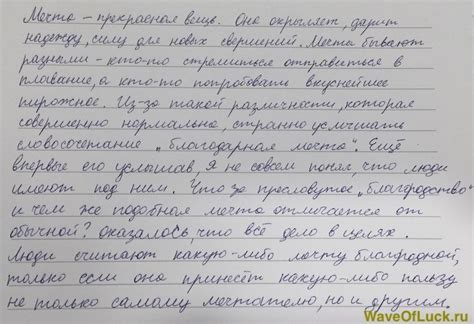 Мечта – прекрасная вещь. Она окрыляет, дарит
надежду, силу для новых свершений. Мечты бывают
разными – кто-то стремиться отправиться в
плавание, а кто-то попробовать вкуснейшее
пирожное. Из-за такой различности, которая
совершенно нормальна, странно услышать
словосочетание „благодарная мечта“. Ещё
впервые его услышав, я не совсем понял, что люди
имеют под ним. Что за пресловутое „благородство“
и чем же подобная мечта отличается от
обычной? Оказалось, что всё дело в целях.
Люди считают какую-либо мечту благородной,
только если она принесёт какую-либо пользу
не только самому мечтателю, но и другим.
WaveOfLuck.ru